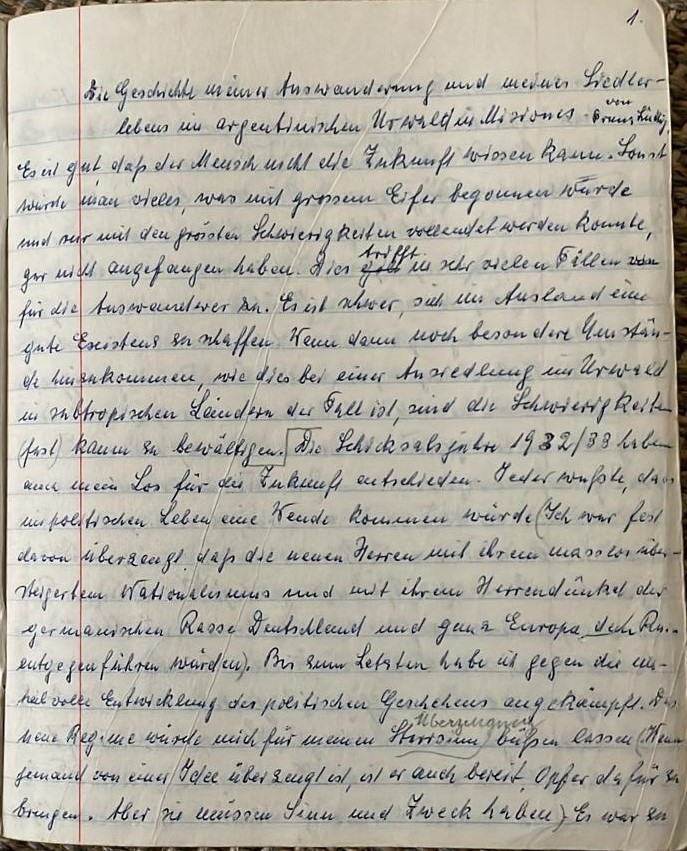 1.
Die Geschichte meiner Auswanderung und meines Siedler-
lebens im argentinischen Urwald in Misiones von
Es ist gut, daß der Mensch nicht die Zukunft wissen kann. Sonst
würde man vieles, was mit grossem Eifer begonnen wurde
und nur mit den grössten Schwierigkeiten vollendet werden konnte,
gar nicht angefangen haben. Dies trifft in sehr vielen Fällen von
für die Auswanderer zu. Es ist schwer, sich im Ausland eine
gute Existenz zu schaffen. Wenn dann noch besondere Umstän-
de hinzukommen, wie dies bei einer Ansiedlung im Urwald
in subtropischen Ländern der Fall ist, sind die Schwierigkeiten
(fast) kaum zu bewältigen. Die Schicksalsjahre 1932/33 haben
auch mein Los für die Zukunft entschieden. Jeder wußte, dass
im politischen Leben eine Wende kommen würde (Ich war fest
davon überzeugt, daß die neuen Herren mit ihrem masslos über-
steigertem Nationalismus und mit ihrem Herrendünkel der
germanischen Rasse Deutschland und ganz Europa dem Ruin
entgegenführen würden). Bis zum Letzten habe ich gegen die un-
heilvolle Entwicklung des politischen Geschehens angekämpft. Das
neue Regime würde mich für meinen Starrsinn Überzeugung büßen lassen (Wenn
jemand von einer Idee überzeugt ist, ist er auch bereit, Opfer dafür zu
bringen. Aber sie müssen Sinn und Zweck haben) Es war zu